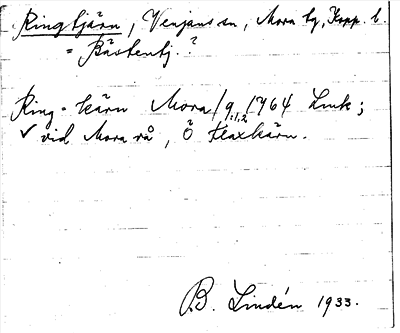 Ringtjärn, Venjans sn, Mora tg, Kopp. l.
= Bävtentj. ?
Ring-kärn Mora/9:1,2 1764 Lmk;
✓ vid Mora rå, Ö Flaxkärn.
B. Lindén 1933.